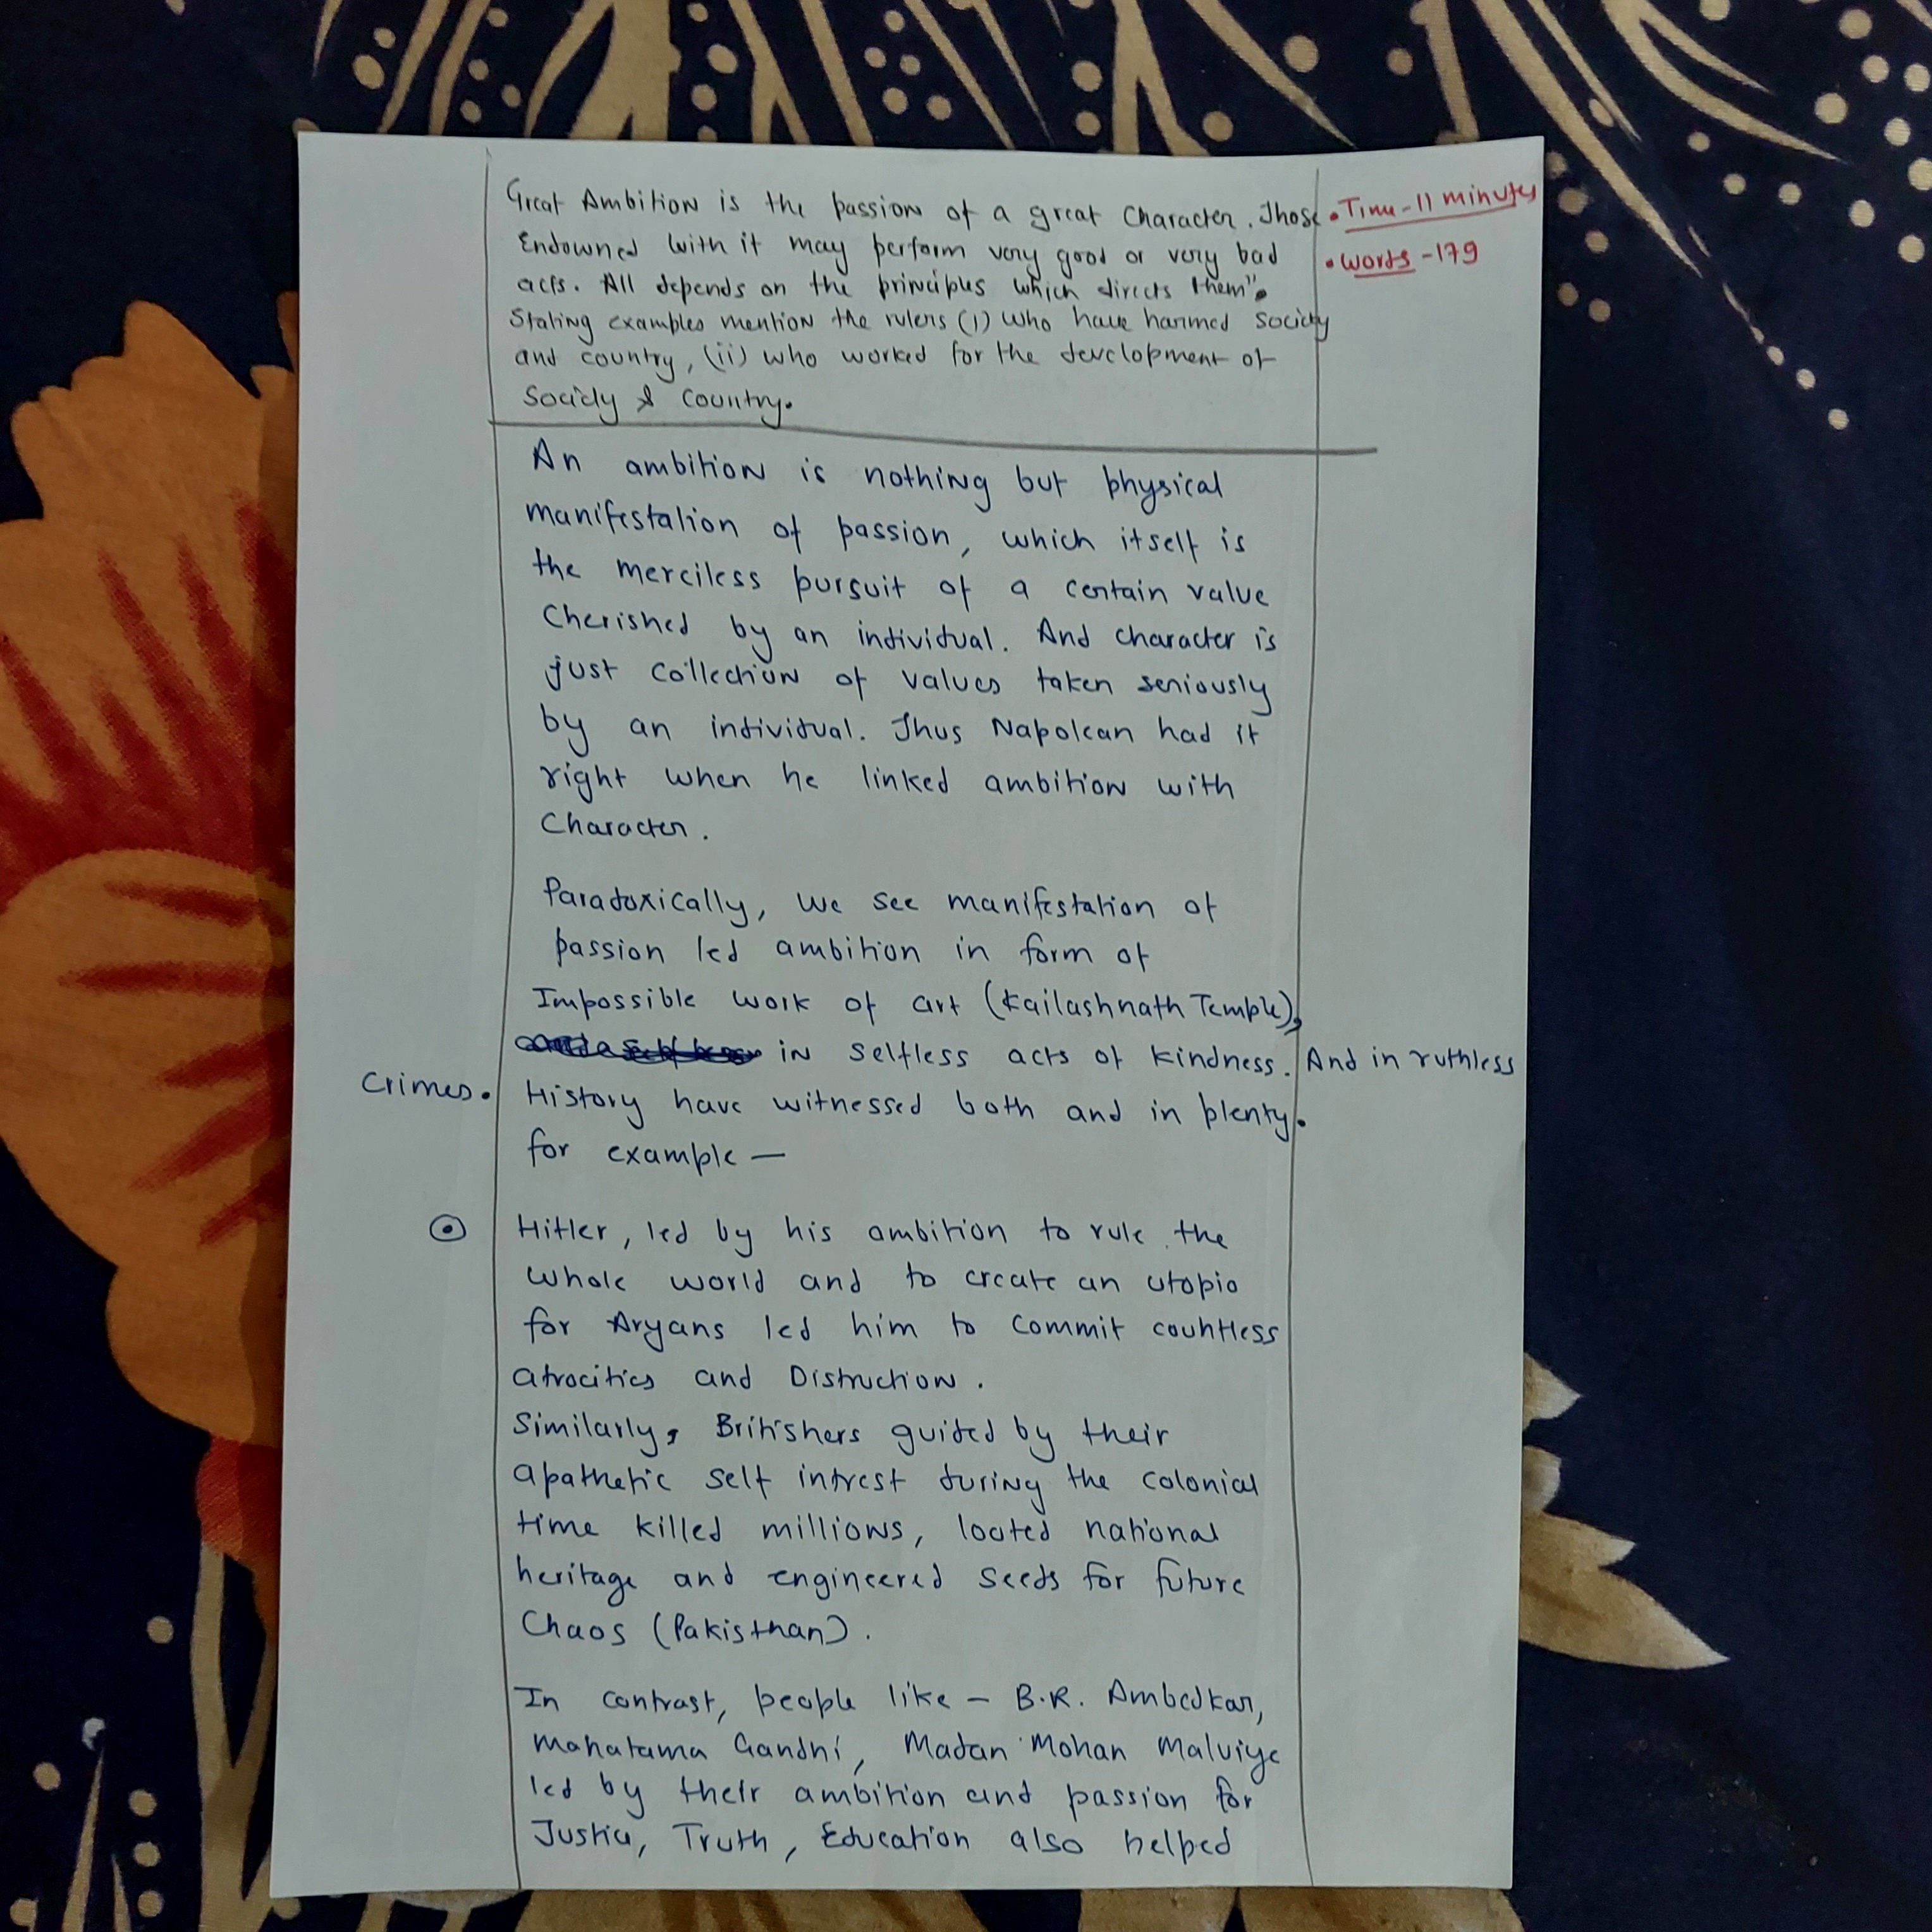 Great Ambition is the passion of a great character. Those
Endowned with it may perform very good or very bad
acts. All depends on the principles which directs them".
Stating examples mention the rulers (i) who have harmed society
and country, (ii) who worked for the development of
Society & country.
• Time - 11 minutes
• words - 179
An ambition is nothing but physical
manifestation of passion, which itself is
the merciless pursuit of a certain value
Cherished by an individual. And character is
just collection of values taken seriously
by an individual. Thus Napolean had it
right when he linked ambition with
Character.
Paradoxically, we see manifestation of
passion led ambition in form of
Impossible work of art (Kailashnath Temple),
in selfless acts of kindness. And in ruthless
Crimes. History have witnessed both and in plenty.
for example —
Hitler, led by his ambition to rule the
whole world and to create an utopia
for Aryans led him to commit countless
atrocities and Distruction.
Similarly, Britishers guided by their
apathetic self intrest during the colonial
time killed millions, looted national
heritage and engineered seeds for future
Chaos (Pakisthan).
In contrast, people like – B.R. Ambedkar,
Mahatama Gandhi, Madan Mohan Malviye
led by their ambition and passion for
Justice, Truth, Education also helped